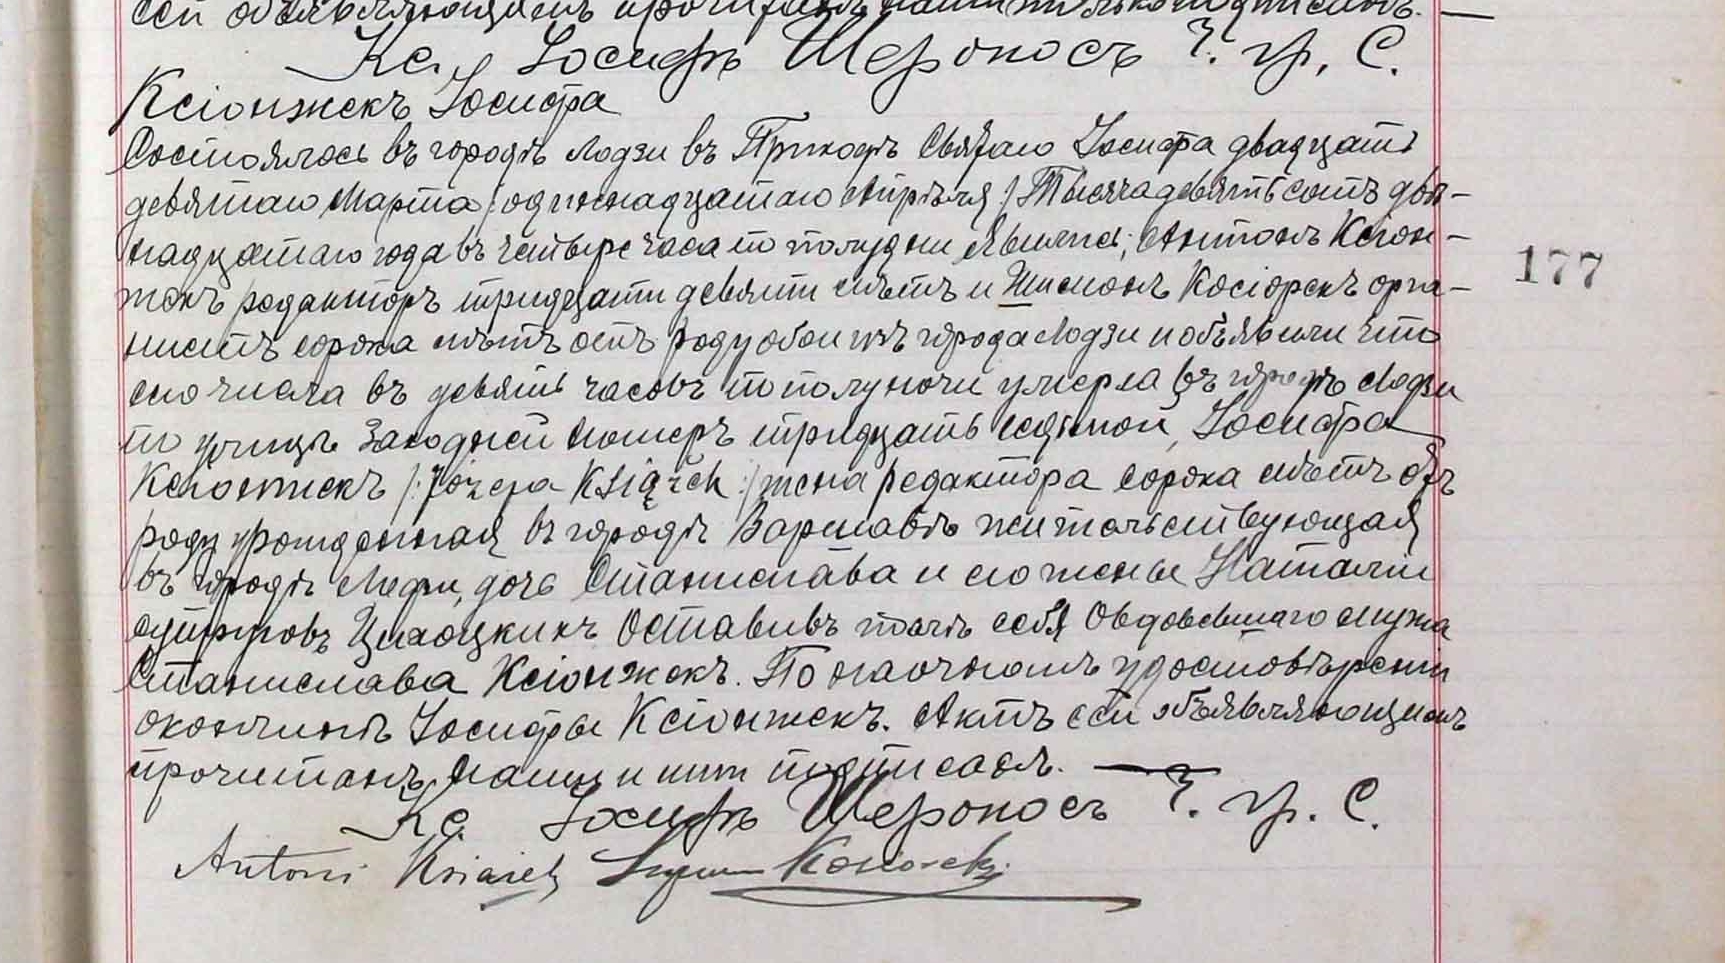 сей объявляющимъ прочитанъ нами только подписанъ. —
Кс. Іосифъ Шероносъ Ч. гр. С.
Ксіонжекъ Іосифа
Состоялось въ городѣ Лодзи въ Приходѣ Святаго Іосифа двадцать
девятаго Марта /одиннадцатаго Апрѣля/ Тысяча девятьсотъ двѣ-
надцатаго года въ четыре часа по полудни Явились; Антонъ Ксіон-
жекъ редакторъ тридцати девяти лѣтъ и Шимонъ Косіорекъ орга-
нистъ сорока лѣтъ отъ роду обои изъ города Лодзи и объявили что
сего числа въ девять часовъ по полуночи умерла въ городѣ Лодзи
по улицѣ Заходней номеръ тридцать седьмой, Іосифа
Ксіонжекъ /:Józefa Książek:/ жена редактора сорока лѣтъ отъ
роду урожденная въ городѣ Варшавѣ жительствующая
въ городѣ Лодзи, дочь Станислава и его жены Наталіи
супруговъ Оставивъ послѣ себя Овдовевшаго мужа
Станислава Ксіонжекъ. По наочномъ удостовѣреніи
окончинѣ Іосифы Ксіонжекъ. Актъ сей объявляющимъ
прочитанъ, Нами и ими подписанъ. —
Кс. Іосифъ Шероносъ Ч. гр. С.
Antoni Książek Szymon Kosiorek
177